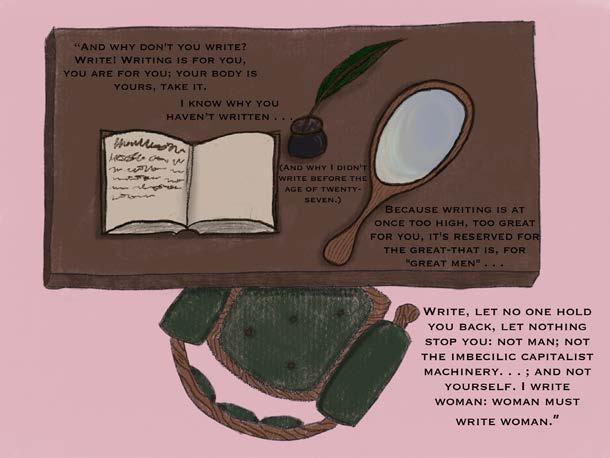 “AND WHY DON'T YOU WRITE?
WRITE! WRITING IS FOR YOU,
YOU ARE FOR YOU; YOUR BODY IS
YOURS, TAKE IT.
I KNOW WHY YOU
HAVEN'T WRITTEN . . .
(AND WHY I DIDN'T
WRITE BEFORE THE
AGE OF TWENTY-
SEVEN.)
BECAUSE WRITING IS AT
ONCE TOO HIGH, TOO GREAT
FOR YOU, IT'S RESERVED FOR
THE GREAT-THAT IS, FOR
"GREAT MEN" . . .
WRITE, LET NO ONE HOLD
YOU BACK, LET NOTHING
STOP YOU: NOT MAN; NOT
THE IMBECILIC CAPITALIST
MACHINERY. . . ; AND NOT
YOURSELF. I WRITE
WOMAN: WOMAN MUST
WRITE WOMAN.”